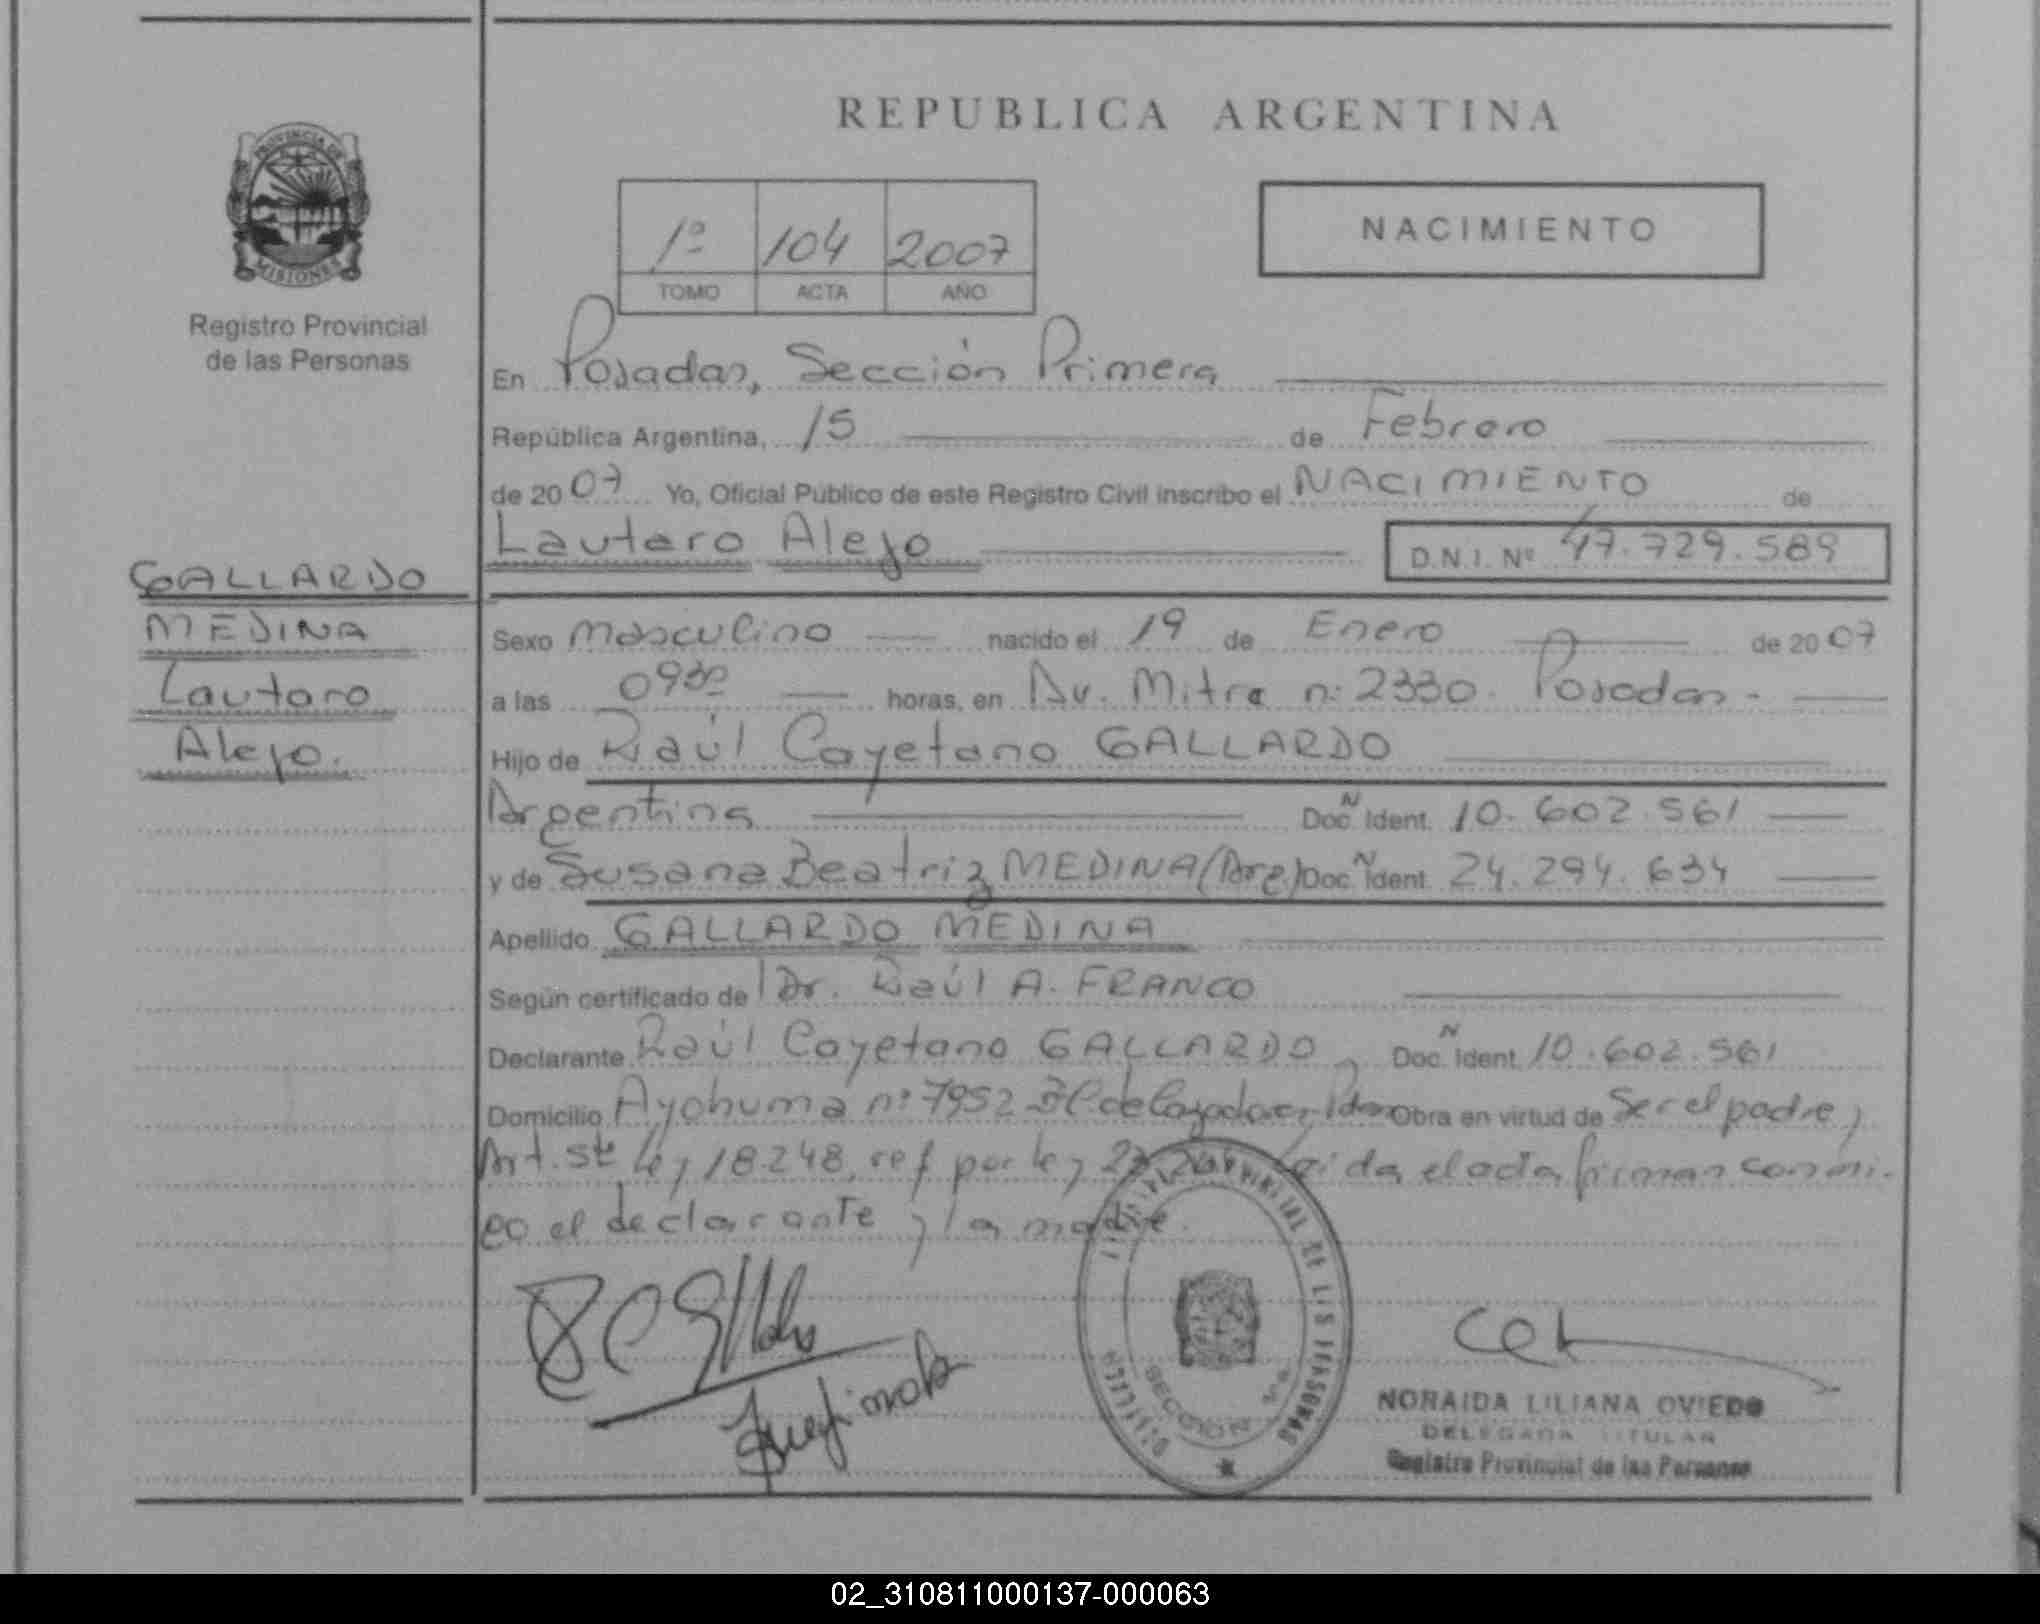 REPUBLICA ARGENTINA
PROVINCIA DE
MISIONES
Registro Provincial
de las Personas
1º 104 2007
TOMO ACTA AÑO
NACIMIENTO
En Posadas, Sección Primera
República Argentina, 15 de Febrero
de 2007 Yo, Oficial Público de este Registro Civil inscribo el NACIMIENTO de
Lautaro Alejo D.N.I. Nº 47.729.589
GALLARDO
MEDINA
Lautaro
Alejo.
Sexo Masculino nacido el 19 de Enero de 2007
a las 0930 horas, en Av. Mitre nº 2330. Posadas -
Hijo de Raúl Cayetano GALLARDO
Argentina Doc. N Ident. 10.602.561
y de Susana Beatriz MEDINA (Arg.) Doc. N Ident. 24.294.634
Apellido GALLARDO MEDINA
Según certificado de Dr. Raúl A. FRANCO
Declarante Raúl Cayetano GALLARDO Doc. N Ident. 10.602.561
Domicilio Ayohuma nº 7952 Obra en virtud de Ser el padre y
Art. 5te ley 18.248, ref. por ley Leída el acta firman conmi-
go el declarante y la madre.
SECCION 1ra
NORAIDA LILIANA OVIEDO
DELEGADA TITULAR
Registro Provincial de las Personas
02_310811000137-000063